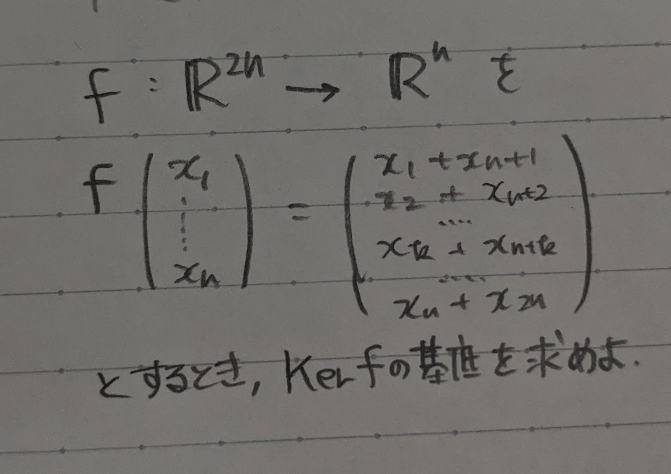 f : ℝ²ⁿ → ℝⁿ を
f ( x₁ ⋮ xₙ ) = ( x₁ + xₙ₊₁
x₂ + xₙ₊₂
....
xₖ + xₙ₊ₖ
.....
xₙ + x₂ₙ )
とするとき, Ker fの基底を求めよ.